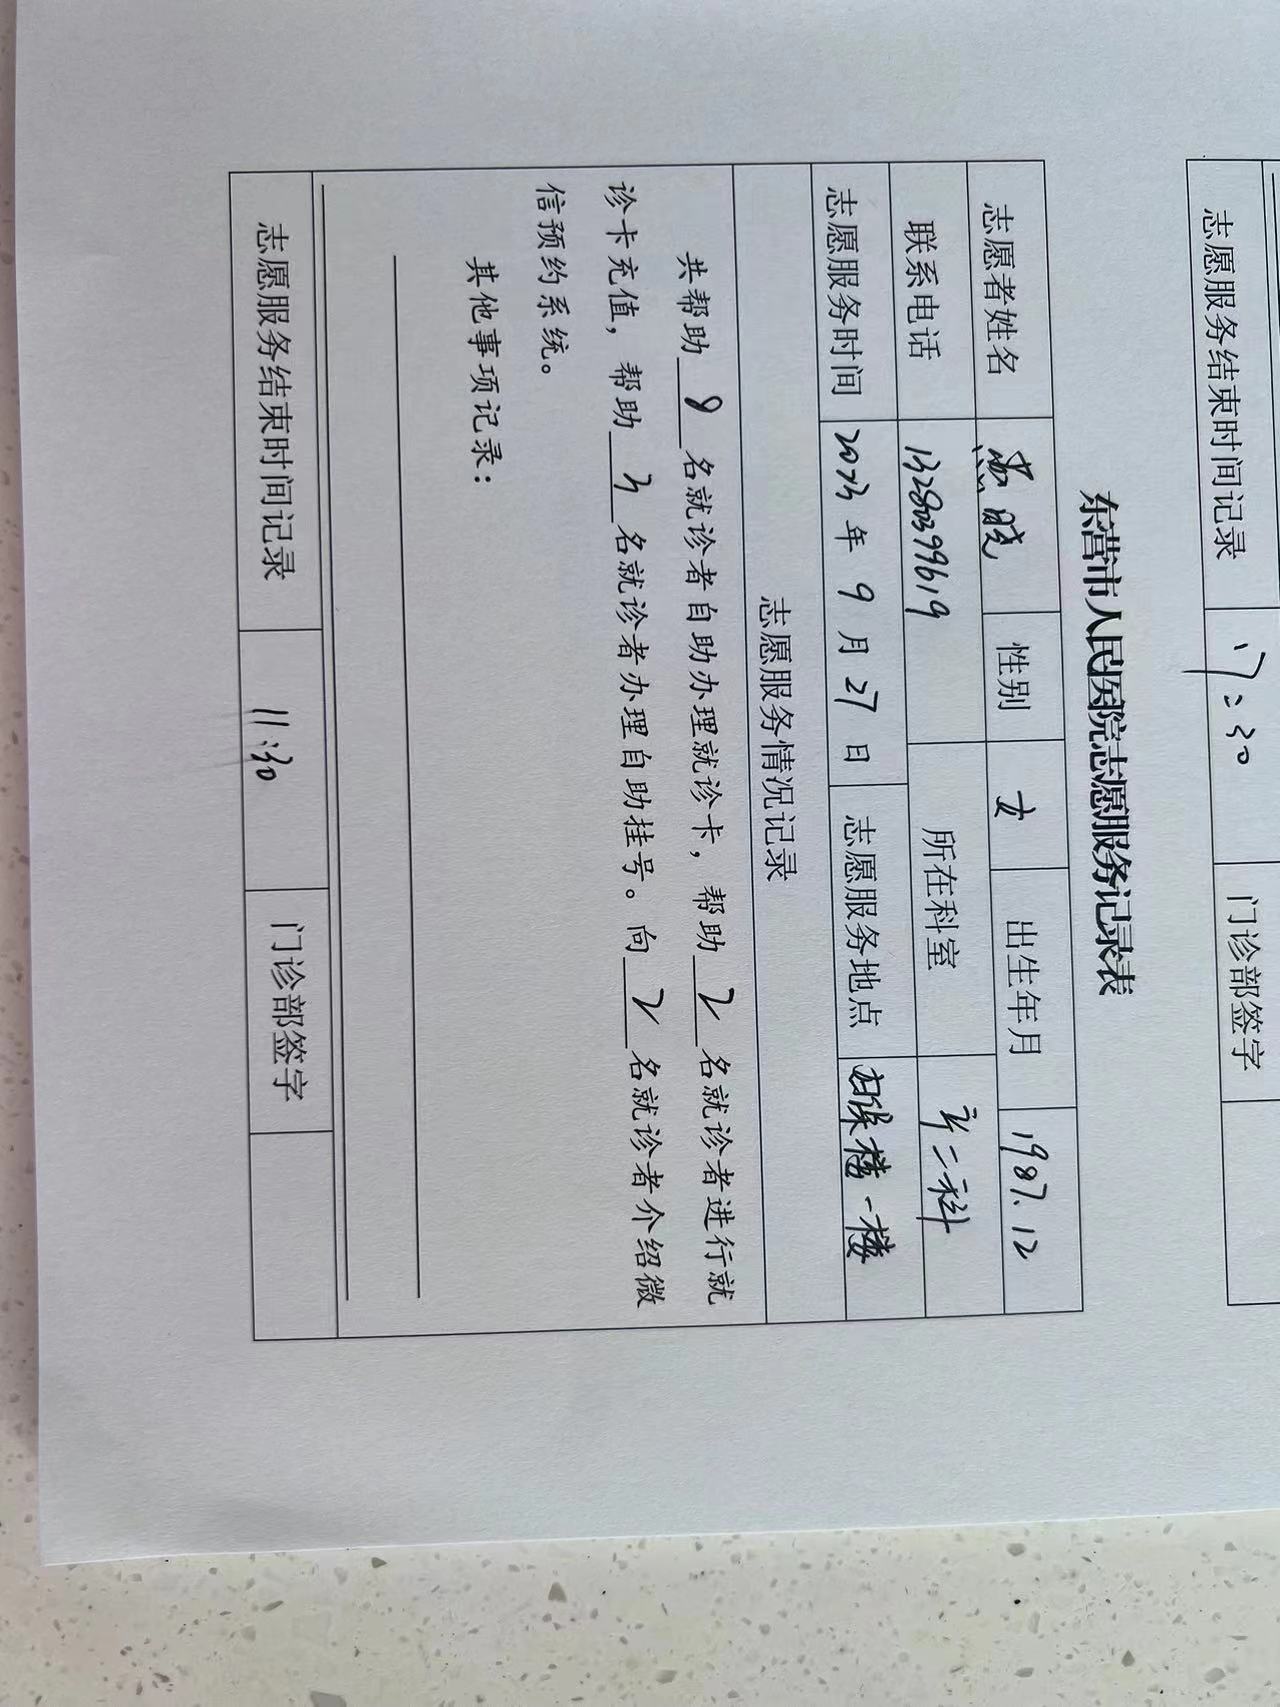 志愿服务结束时间记录 17:30 门诊部签字
东营市人民医院志愿服务记录表
志愿者姓名 晓 性别 女 出生年月 1987.12
联系电话 13280399619 所在科室 二科
志愿服务时间 2023年9月27日 志愿服务地点 妇保楼一楼
志愿服务情况记录
共帮助 8 名就诊者自助办理就诊卡，帮助 2 名就诊者进行就
诊卡充值，帮助 3 名就诊者办理自助挂号。向 2 名就诊者介绍微
信预约系统。
其他事项记录：
志愿服务结束时间记录 11:30 门诊部签字